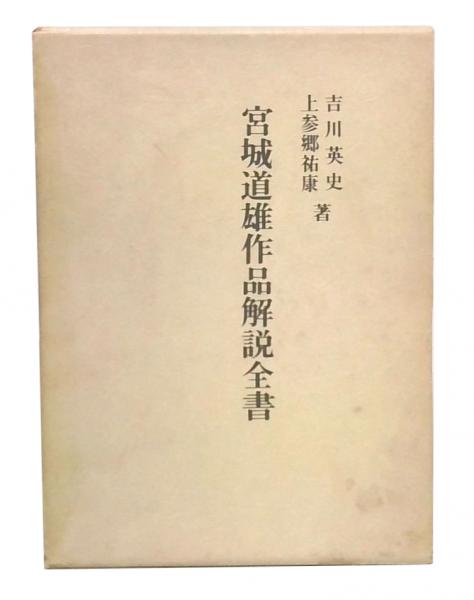 吉川英史
上参郷祐康 著
宮城道雄作品解説全書